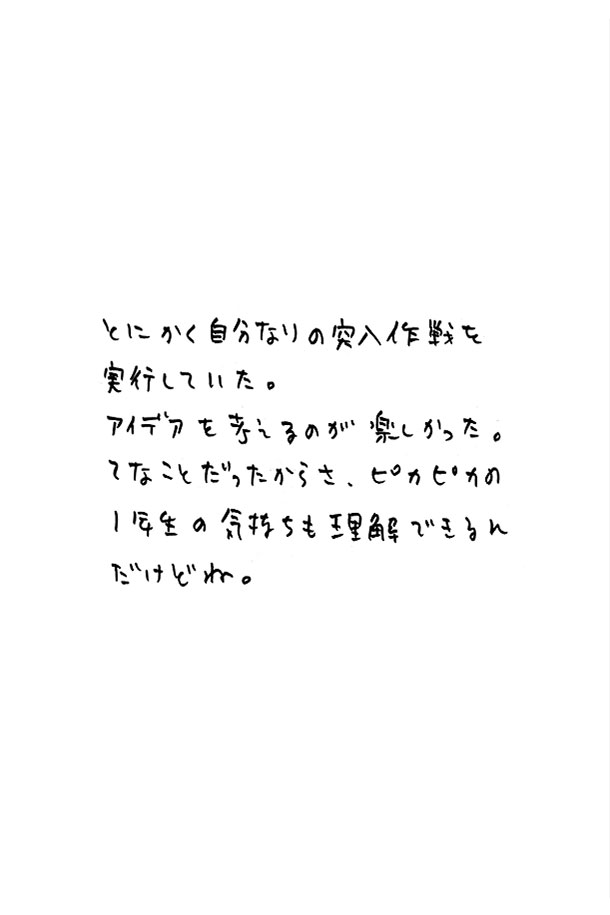 とにかく自分なりの突入作戦を
実行していた。
アイデアを考えるのが楽しかった。
てなことだったからさ、ピカピカの
1年生の気持ちも理解できるん
だけどね。